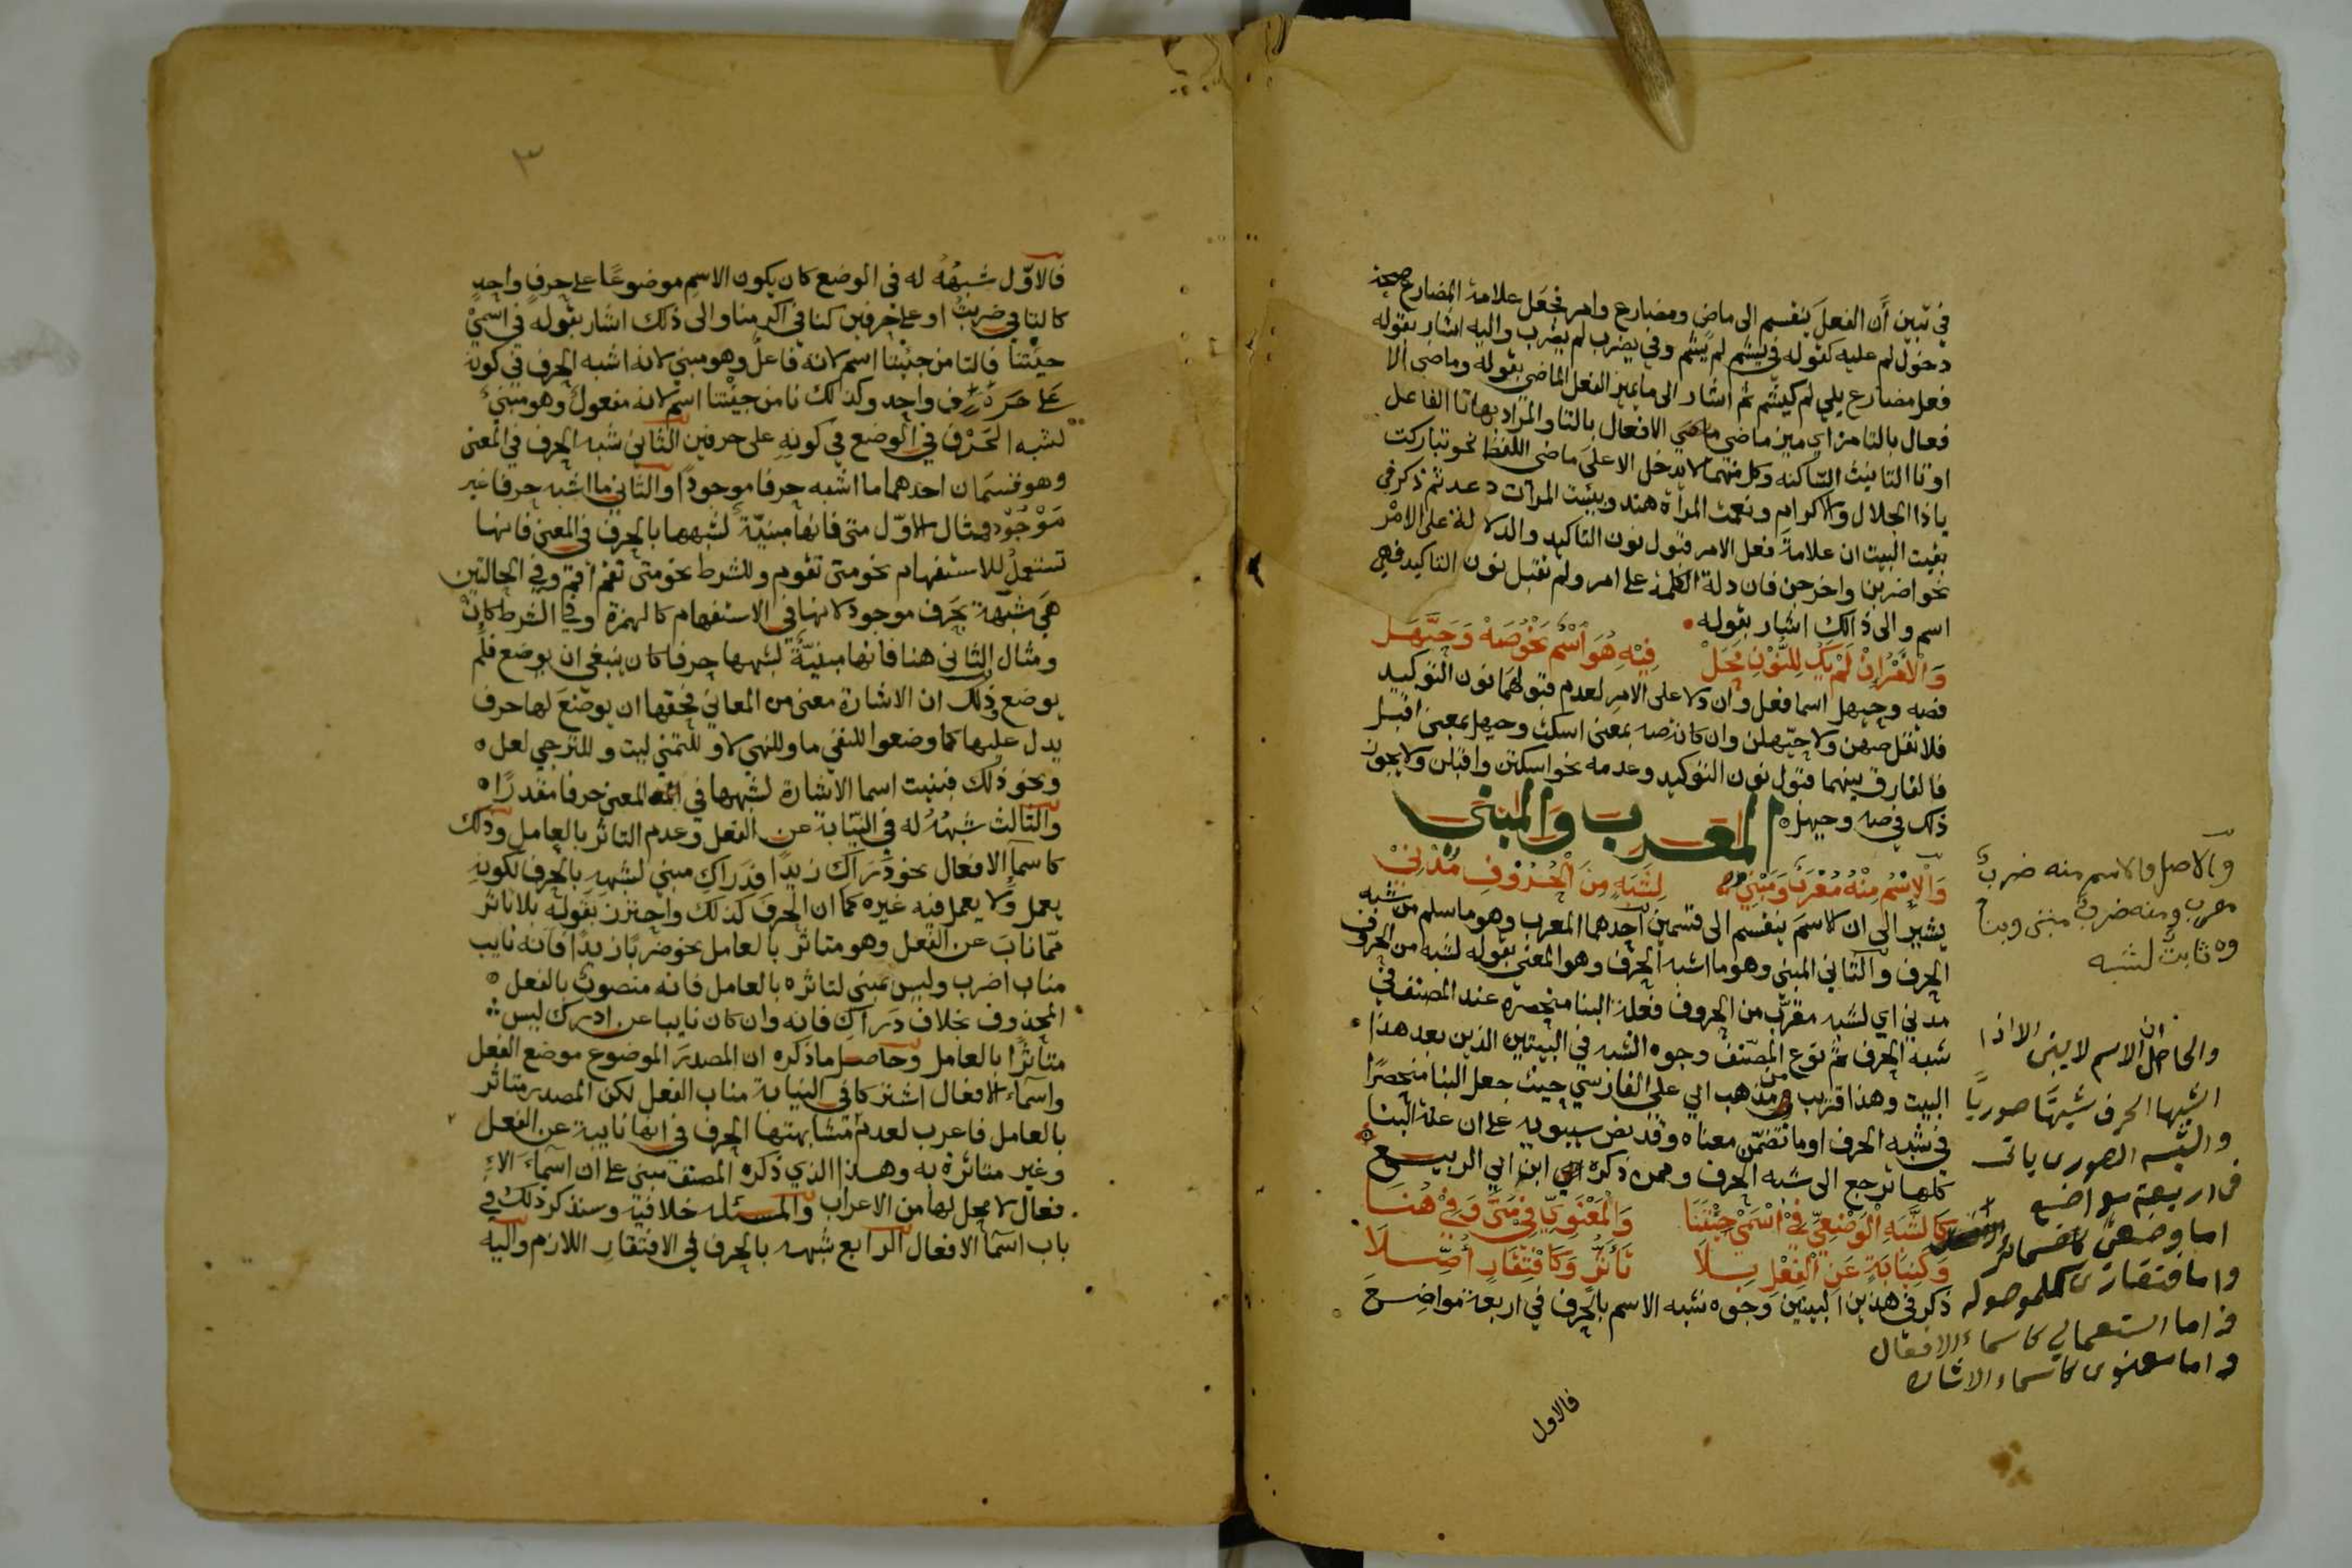 في تبين أن الفعل ينقسم الى ماضٍ ومضارع وامر فجعل علامة المضارع صحة
دخول لم عليه كقوله في يشم لم يشم وفي يضرب لم يضرب واليه اشار بقوله
فعل مضارع يلي لم كيشم ثم اشار الى ما يميز الفعل الماضي بقوله وماضي الا
فعال بالتا مز اي ميز ماضي الافعال بالتا والمراد بها تا الفاعل
او تا التانيث الساكنة وكل منهما لا يدخل الا على ماضي اللفظ نحو تباركت
ياذا الجلال والاكرام ونعمت المرأة هند وبيست المرأت دعد ثم ذكر في
بقيت البيت ان علامة فعل الامر قبول نون التاكيد والدلالة على الامر
نحو اضربن واخرجن فان دلة الكلمة على امر ولم تقبل نون التاكيد فهي
اسم والى ذالك اشار بقوله
وَالْاَمْرُ اِنْ لَمْ يَكُ لِلنُّوْنِ مَحَلْ فِيْهِ هُوَ اسْمٌ نَحْوُ صَهْ وَحَيَّهَلْ
فصه وحيهل اسما فعل وان دلا على الامر لعدم قبولهما نون التوكيد
فلا تقل صهن ولا حيهلن وان كانت صه بمعنى اسكت وحيهل بمعنى اقبل
فالفارق بينهما قبول نون التوكيد وعدمه نحو اسكتن واقبلن ولا يجوز
ذلك في صه وحيهل ه
المعرب والمبني
وَالْاِسْمُ مِنْهُ مُعْرَبٌ وَمَبْنِيْ لِشَبَهٍ مِنَ الْحُرُوْفِ مُدْنِيْ
يشير الى ان الاسم ينقسم الى قسمين احدهما المعرب وهو ما سلم من شبه
الحرف والثاني المبني وهو ما اشبه الحرف وهو المعني بقوله لشبه من الحروف
مدني اي لشبه مقرب من الحروف فعلة البنا منحصرة عند المصنف في
شبه الحرف ثم نوع المصنف وجوه الشبه في البيتين الذين بعد هذا
البيت وهذا قريب من مذهب ابي علي الفارسي حيث جعل البنا منحصرًا
في شبه الحرف او ما تضمن معناه وقد نص سيبويه على ان علة البنا
كلها ترجع الى شبه الحرف وممن ذكره ابن ابي الربيع
كَالشَّبَهِ الْوَضْعِيِّ فِيْ اسْمَيْ جِئْتَنَا وَالْمَعْنَوِيِّ فِيْ مَتَى وَفِيْ هُنَا
وَكَنِيَابَةٍ عَنِ الْفِعْلِ بِلَا تَأَثُّرٍ وَكَافْتِقَارٍ اُصِّلَا
ذكر في هذين البيتين وجوه شبه الاسم بالحرف في اربعة مواضع
والاصل والاسم منه ضربٌ
معرب ومنه ضرب مبني وبنا
وه ثابت لشبه
والحاصل ان الاسم لا يبنى الا اذا
اشبها الحرف شبها صوريا
والشبه الصوري ياتى
فى اربعة مواضع
اما وضعي كاضمائر
واما افتقارى كلموصوله
و اما استعمالي كاسماء الافعال
و اما معنوى كاسماء الاشاره
فالاول
٣
فالاوّل شبهُهُ له في الوضع كان يكون الاسم موضوعًا على حرفٍ واحدٍ
كالتا في ضربتُ او على حرفين كنا في اكرمنا والى ذلك اشار بقوله في اسمي
جئتنا فالتا من جئتنا اسم لانه فاعل وهو مبني لانه اشبه الحرف في كونه
على حرف واحد وكذالك نا من جئتنا اسم لانه مفعول وهو مبني
لشبه الحرف في الوضع في كونه على حرفين الثاني شبه الحرف في المعنى
وهو قسمان احدهما ما اشبه حرفا موجودًا والثاني ما اشبه حرفا غير
مَوْجُوْدٍ فمثال الاوّل متى فانها مبنيّة لشبهها بالحرف في المعنى فانها
تستعمل للاستفهام نحو متى تقوم وللشرط نحو متى تقم اقم وفي الحالتين
هي شبهة بحرف موجود لانها في الاستفهام كالهمزة وفي الشرط كانْ
ومثال الثاني هنا فانها مبنيّة لشبهها حرفا كان ينبغي ان يوضع فلم
يوضع وذلك ان الاشارة معنى من المعاني فحقها ان يوضع لها حرف
يدل عليها كما وضعوا للنفي ما وللنهي لا وللتمني ليت وللترجي لعل ه
ونحو ذلك فبنيت اسما الاشارة لشبهها في المعنى حرفا مقدرًا ه
والثالث شبهُهُ له في النيابة عن الفعل وعدم التاثر بالعامل وذلك
كاسمآ الافعال نحو دَرَاكِ زيدًا فدراكِ مبني لشبهه بالحرف لكونه
يعمل ولا يعمل فيه غيره كما ان الحرف كذلك واحترز بقوله بلا تاثر
ممّا ناب عن الفعل وهو متاثر بالعامل نحو ضربًا زيدًا فانه نايب
مناب اضرب وليس بمبني لتاثره بالعامل فانه منصوب بالفعل ه
المحذوف بخلاف دَرَاكِ فانه وان كان نايبا عن ادرك ليس
متاثرًا بالعامل وحاصل ما ذكره ان المصدر الموضوع موضع الفعل
واسماء الافعال اشتركا في النيابة مناب الفعل لكن المصدر متاثر
بالعامل فاعرب لعدم مشابهتها الحرف في انها نايبة عن الفعل
وغير متاثرة به وهذا الذي ذكره المصنف مبني على ان اسماء الا
فعال لا محل لها من الاعراب والمسئلة خلافية وسنذكر ذلك في
باب اسما الافعال الرابع شبهه بالحرف في الافتقار اللازم واليه